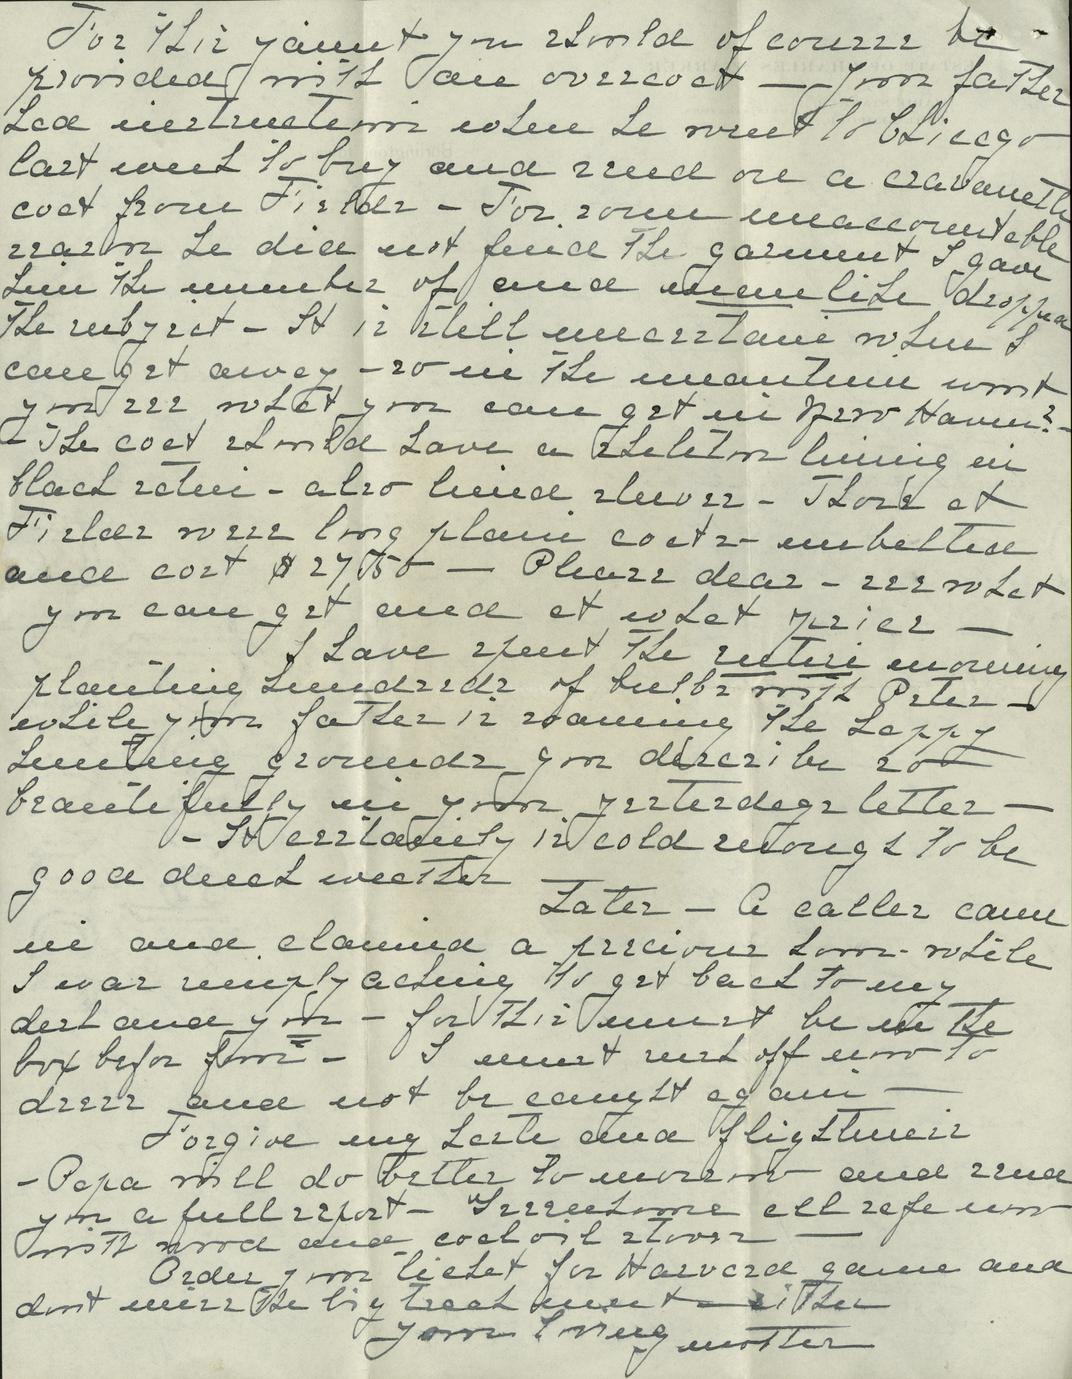 For this jaunt you should of course be
provided with an overcoat — Your father
had instructions when he went to Chicago
last week to buy and send on a cravanette
coat from Fields - For some unaccountable
reason he did not find the garment I gave
him the number of and man like dropped
the subject - It is still uncertain when I
can get away - so in the meantime wont
you see what you can get in New Haven? -
- The coat should have a skeleton lining in
black satin - also lined sleeves - Those at
Fields were long plain coats - unbelted
and cost $27.50 — Please dear - see what
you can get and at what price —
I have spent the entire morning
planting hundreds of bulbs with Peter -
while your father is roaming the happy
hunting grounds you describe so
beautifully in your yesterdays letter —
- It certainly is cold enough to be
good duck weather
Later - A caller came
in and claimed a precious hour - while
I was simply aching to get back to my
desk and you - for this must be in the
box before four - I must rush off now to
dress and not be caught again —
Forgive my haste and flightiness
- Papa will do better to morrow and send
you a full report - "Greenhome all safe now
with wood and coal oil stoves —
Order your ticket for Harvard game and
dont miss the big treat either
Your loving mother